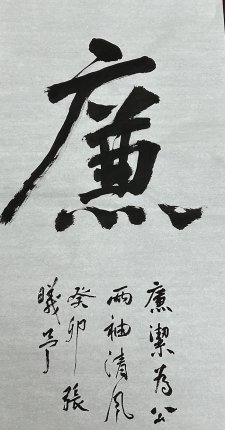 廉
廉潔為公
兩袖清風
癸卯張
曦尊